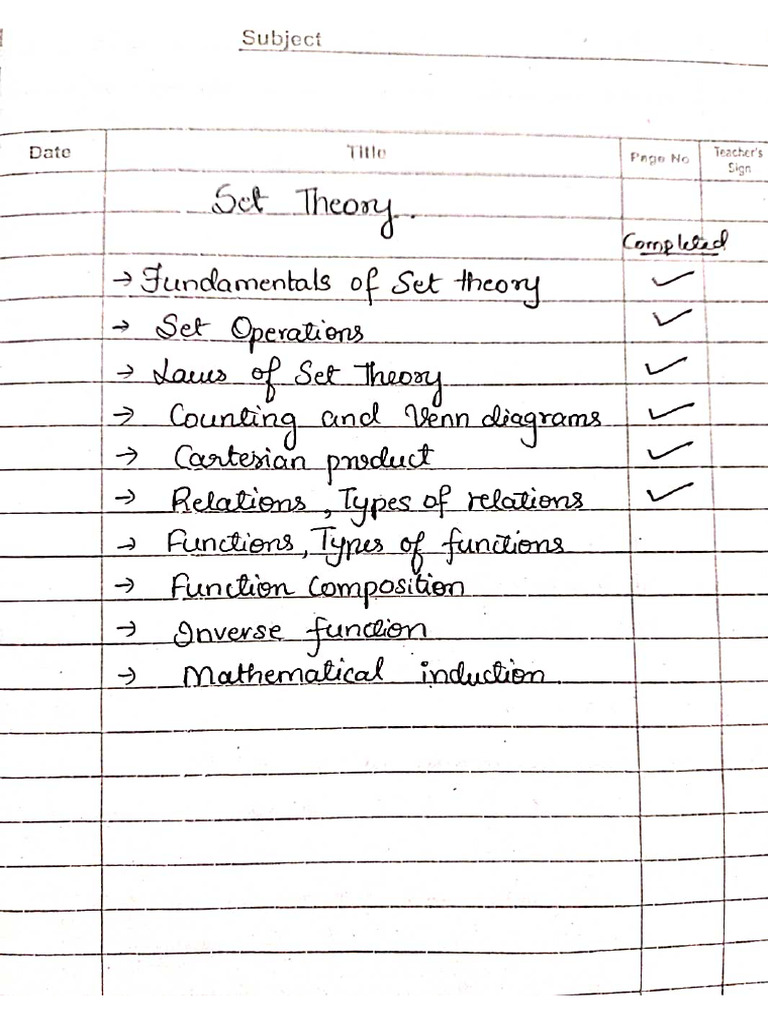 Subject
Date Title Page No Teacher's Sign
Set Theory.
Completed
→ Fundamentals of Set theory ✓
→ Set Operations ✓
→ Laws of Set Theory ✓
→ Counting and Venn diagrams ✓
→ Cartesian product ✓
→ Relations, Types of relations ✓
→ Functions, Types of functions
→ Function Composition
→ Inverse function
→ Mathematical induction